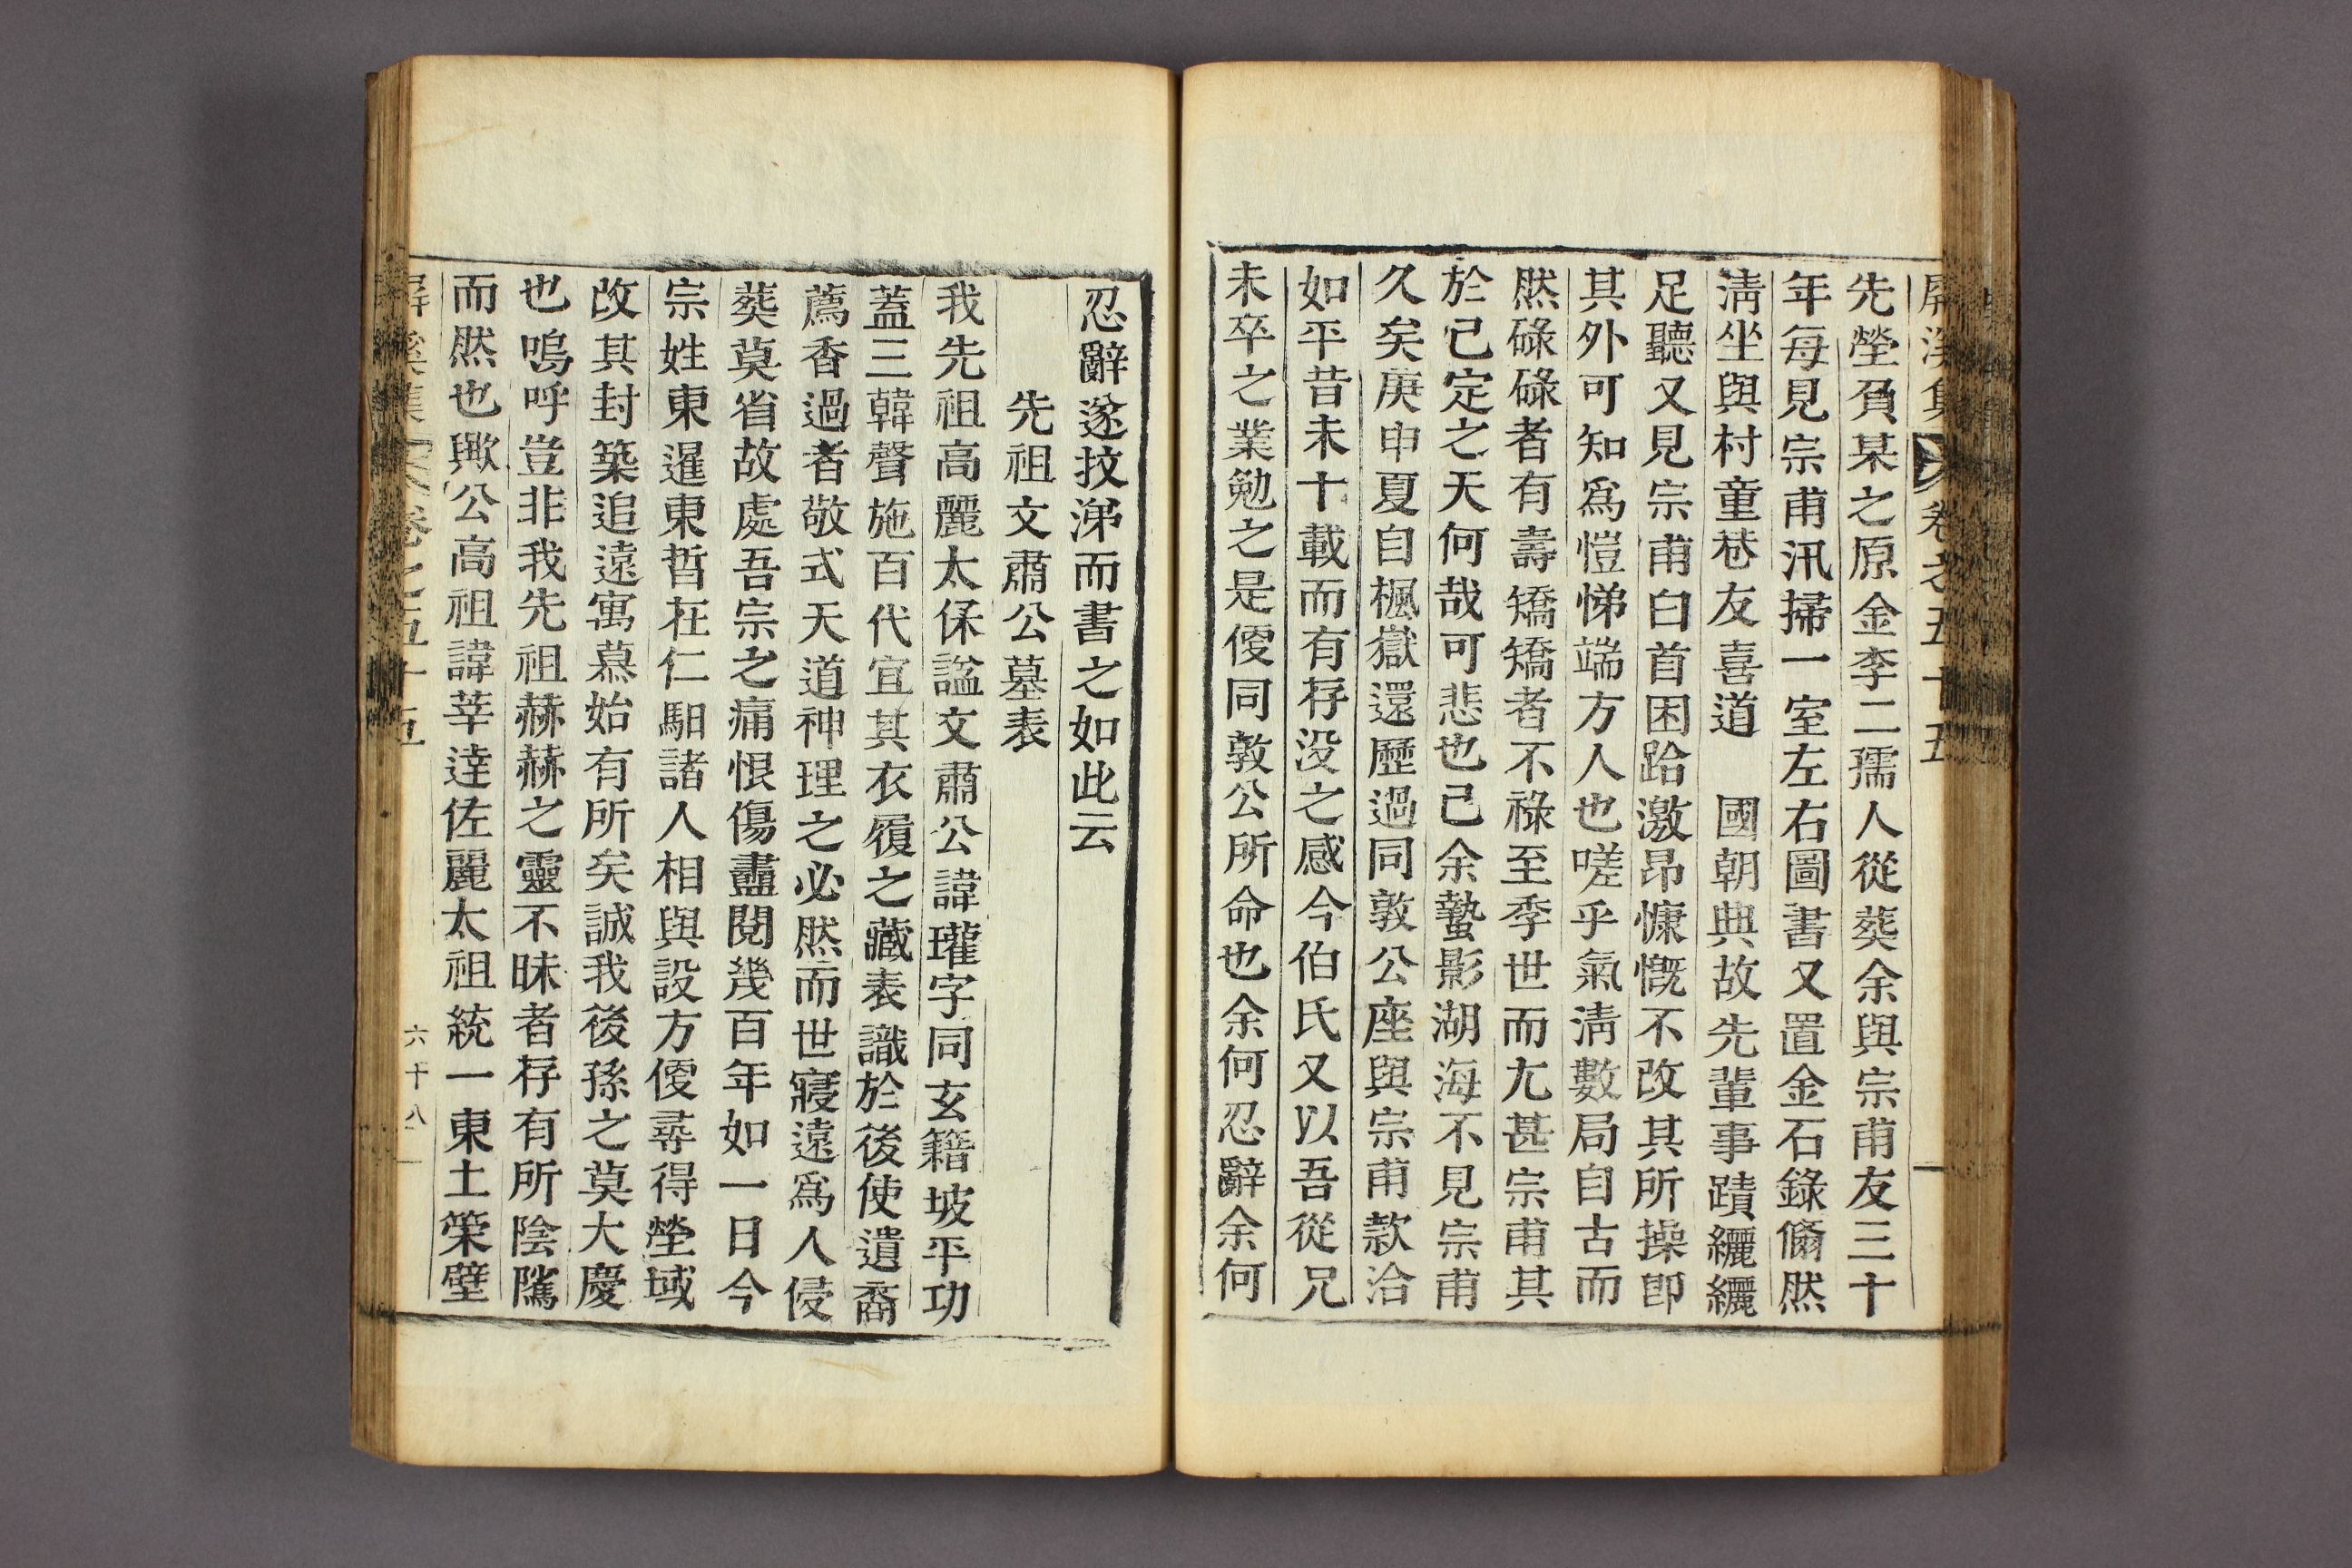 屛溪集 卷之五十五
先塋負某之原金李二孺人從葬余與宗甫友三十
年每見宗甫汛掃一室左右圖書又置金石錄翛然
淸坐與村童巷友喜道 國朝典故先輩事蹟纚纚
足聽又見宗甫白首困跲激昂慷慨不改其所操卽
其外可知爲愷悌端方人也嗟乎氣淸數局自古而
然碌碌者有壽矯矯者不祿至季世而尤甚宗甫其
於已定之天何哉可悲也已余蟄影湖海不見宗甫
久矣庚申夏自楓嶽還歷過同敦公座與宗甫款洽
如平昔未十載而有存沒之感今伯氏又以吾從兄
未卒之業勉之是僾同敦公所命也余何忍辭余何
忍辭遂抆涕而書之如此云
先祖文肅公墓表
我先祖高麗太保諡文肅公諱瓘字同玄籍坡平功
蓋三韓聲施百代宜其衣履之藏表識於後使遺裔
薦香過者敬式天道神理之必然而世寢遠爲人侵
葬莫省故處吾宗之痛恨傷衋閱幾百年如一日今
宗姓東暹東晢在仁駰諸人相與設方便尋得塋域
改其封築追遠寓慕始有所矣誠我後孫之莫大慶
也嗚呼豈非我先祖赫赫之靈不昧者存有所陰隲
而然也歟公高祖諱莘達佐麗太祖統一東土策壁
屛溪集 卷之五十五 六十八